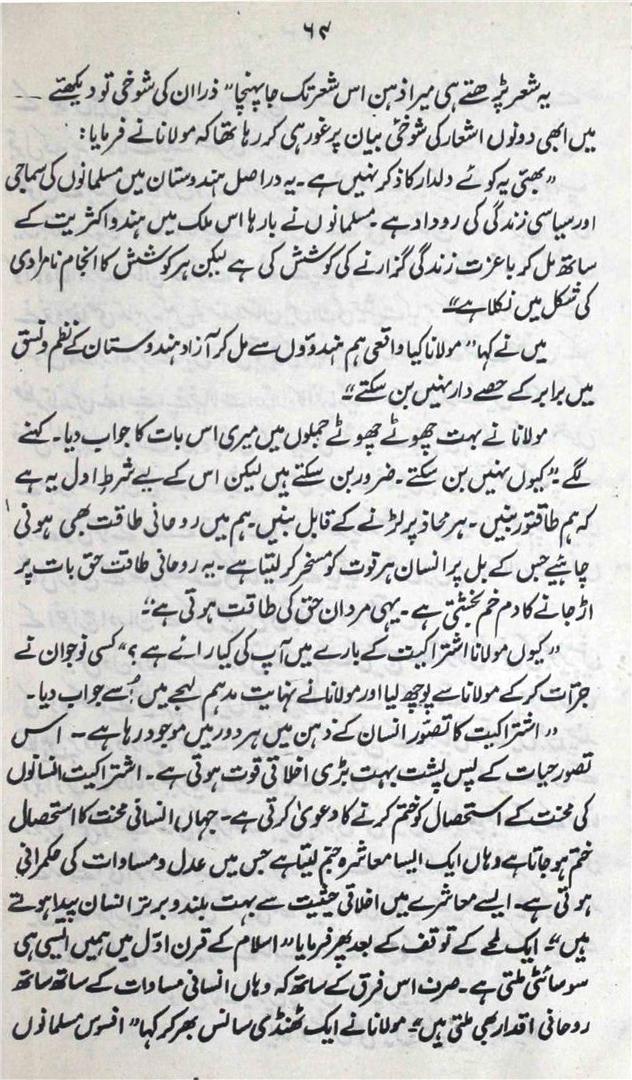 ۶۹
یہ شعر پڑھتے ہی میرا ذہن اس شعر تک جا پہنچا” ذرا ان کی شوخی تو دیکھئے ـــ
میں ابھی دونوں اشعار کی شوخیٔ بیان پر غور ہی کر رہا تھا کہ مولانا نے فرمایا:
”بھئی یہ کوئے دلدار کا ذکر نہیں ہے۔ یہ دراصل ہندوستان میں مسلمانوں کی سماجی
اور سیاسی زندگی کی روداد ہے۔ مسلمانوں نے بارہا اس ملک میں ہندو اکثریت کے
ساتھ مل کر باعزت زندگی گزارنے کی کوشش کی ہے لیکن ہر کوشش کا انجام نامرادی
کی شکل میں نکلا ہے“
میں نے کہا” مولانا کیا واقعی ہم ہندوؤں سے مل کر آزاد ہندوستان کے نظم و نسق
میں برابر کے حصے دار نہیں بن سکتے“
مولانا نے بہت چھوٹے چھوٹے جملوں میں میری اس بات کا جواب دیا۔ کہنے
لگے ”کیوں نہیں بن سکتے۔ ضرور بن سکتے ہیں لیکن اس کے لیے شرط اول یہ ہے
کہ ہم طاقتور بنیں۔ ہر محاذ پر لڑنے کے قابل بنیں۔ ہم میں روحانی طاقت بھی ہونی
چاہئیے جس کے بل پر انسان ہر قوت کو مسخر کر لیتا ہے۔ یہ روحانی طاقت حق بات پر
اڑ جانے کا دم خم بخشتی ہے۔ یہی مردان حق کی طاقت ہوتی ہے“
”کیوں مولانا اشتراکیت کے بارے میں آپ کی کیا رائے ہے؟“ کسی نوجوان نے
جرأت کر کے مولانا سے پوچھ لیا اور مولانا نے نہایت مدہم لہجے میں اُسے جواب دیا۔
”اشتراکیت کا تصوّر انسان کے ذہن میں ہر دور میں موجود رہا ہے ۔ اس
تصور حیات کے پس پشت بہت بڑی اخلاقی قوت ہوتی ہے۔ اشتراکیت انسانوں
کی محنت کے استحصال کو ختم کرنے کا دعویٰ کرتی ہے۔ جہاں انسانی محنت کا استحصال
ختم ہو جاتا ہے وہاں ایک ایسا معاشرہ جنم لیتا ہے جس میں عدل و مساوات کی حکمرانی
ہوتی ہے۔ ایسے معاشرے میں اخلاقی حیثیت سے بہت بلند و برتر انسان پیدا ہوتے
ہیں“ ایک لمحے کے توقف کے بعد پھر فرمایا” اسلام کے قرن اوّل میں ہمیں ایسی ہی
سوسائٹی ملتی ہے۔ صرف اس فرق کے ساتھ کہ وہاں انسانی مساوات کے ساتھ ساتھ
روحانی اقدار بھی ملتی ہیں“ مولانا نے ایک ٹھنڈی سانس بھر کر کہا” افسوس مسلمانوں